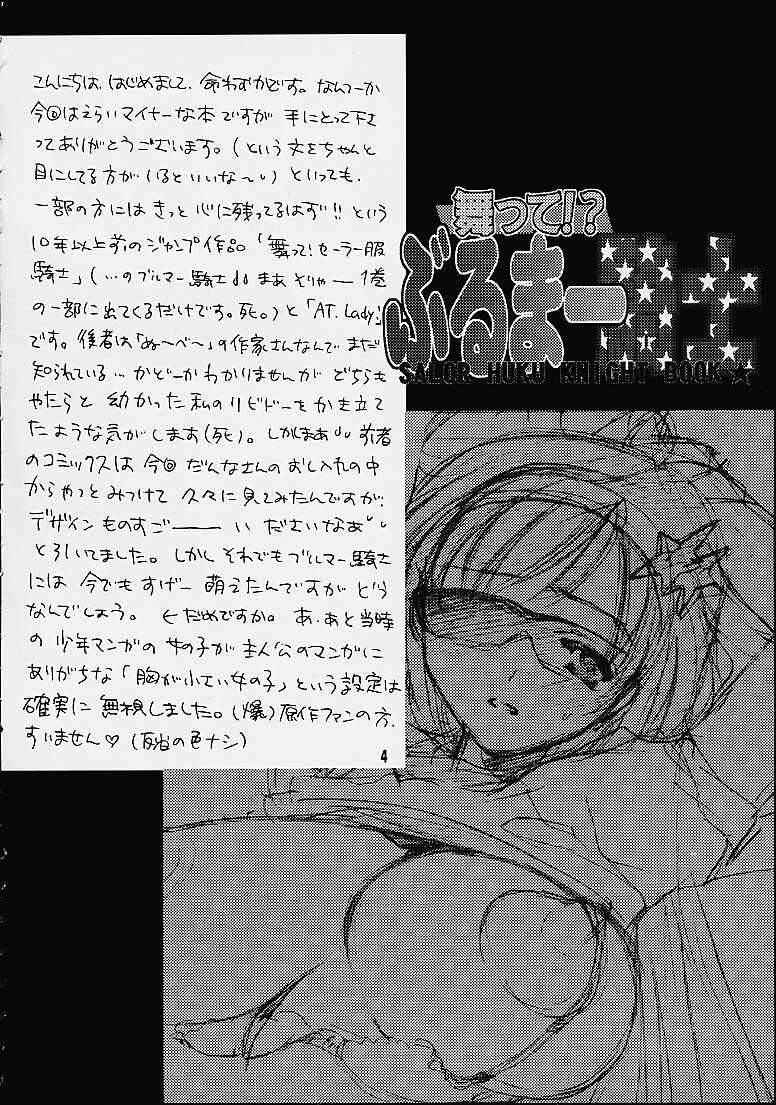 こんにちは、はじめまして、命わずかです。なんつーか
今回はえらいマイナーな本ですが手にとって下さ
ってありがとうございます。(という文をちゃんと
目にしてる方がいるといいな〜)といっても、
一部の方にはきっと心に残ってるはず!!という
10年以上前のジャンプ作品「舞って!セーラー服
騎士」(…のブルマー騎士 まあそりゃー1巻
の一部に出てくるだけです。死。)と「AT. Lady」
です。後者は「ぬ〜べ〜」の作家さんなんでまだ
知られている…かどーかわかりませんがどちらも
やたらと幼かった私のリビドーをかき立て
たような気がします(死)。しかしまあ 前者
のコミックスは今回だんなさんのおし入れの中
からやっとみつけて久々に見てみたんですが、
デザインものすごーーーいださいなあ
とろいてました。しかしそれでもブルマー騎士
には今でもすげー萌えたんですがどう
なんでしょう。←だめですか。あ、あと当時
の少年マンガの女の子が主人公のマンガに
ありがちな「胸が小さい女の子」という設定は
確実に無視しました。(爆)原作ファンの方、
すいません♡(反省の色ナシ)
4
舞って!?
ぶるまー騎士
SALOR HUKU KNIGHT BOOK★